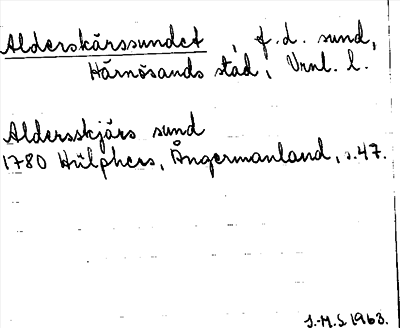 Alderskärssundet, f.d. sund,
Härnösands stad, Vrnl. l.
Aldersskjärs sund
1780 Hülphers, Ångermanland, s. 47.
J.-M.S 1963.